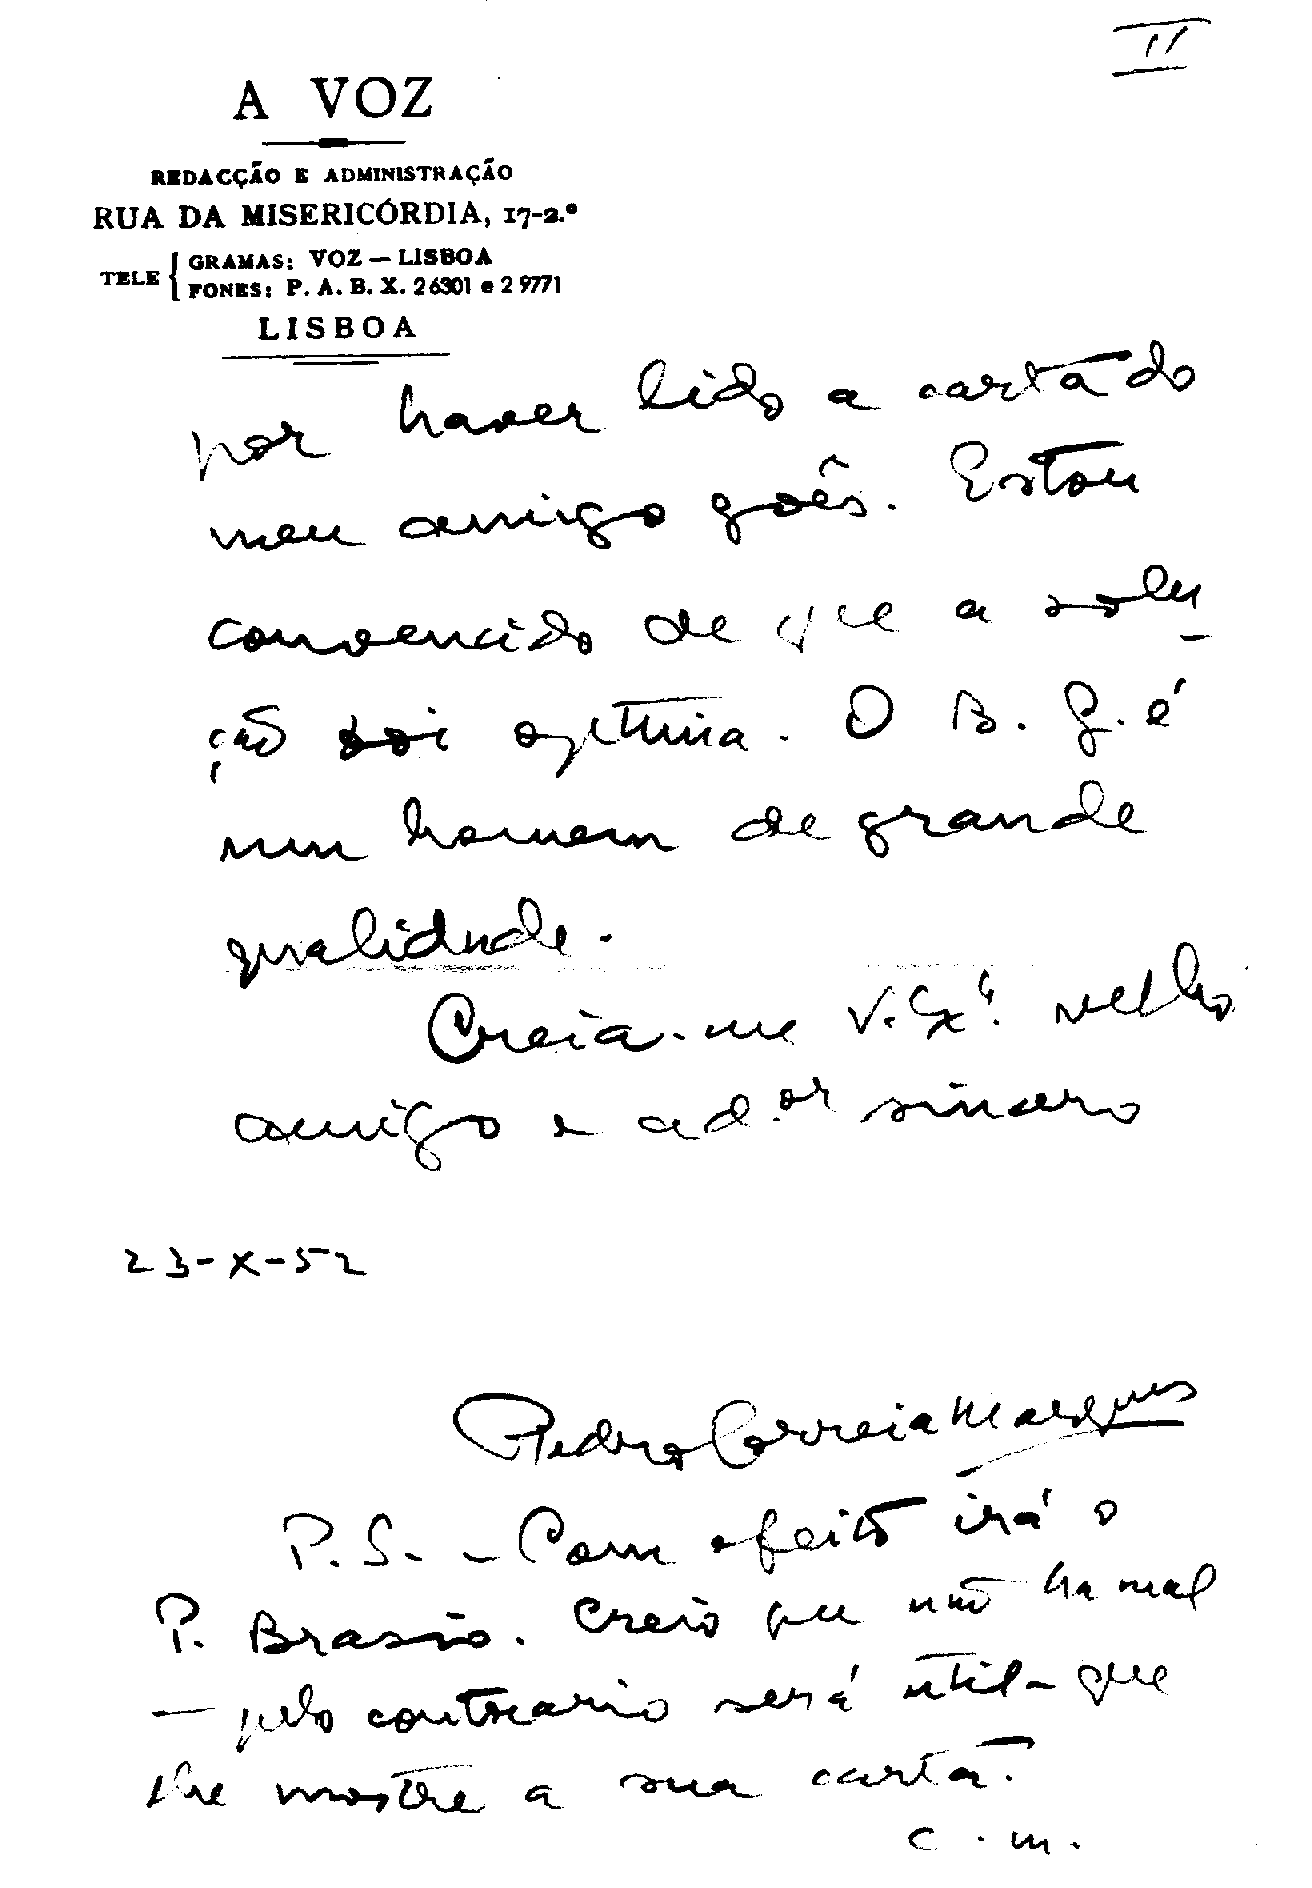 II
A VOZ
REDACÇÃO E ADMINISTRAÇÃO
RUA DA MISERICÓRDIA, 17-2.º
TELE { GRAMAS: VOZ — LISBOA
FONES: P. A. B. X. 26301 e 29771
LISBOA
por haver lido a carta do
meu amigo goês. Estou
convencido de que a solu-
ção foi optima. O B. G. é
um homem de grande
qualidade.
Creia-me V. Exª. velho
amigo e ad.or sincero
23-X-52
Pedro Correia Marques
P. S. - Com efeito irá o
P. Brasio. Creio que não ha mal
— pelo contrario será util - que
lhe mostre a sua carta.
C. M.